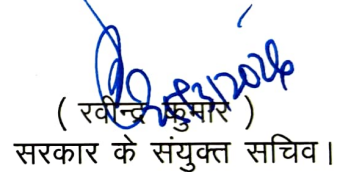 ( रवीन्द्र कुमार )
सरकार के संयुक्त सचिव।